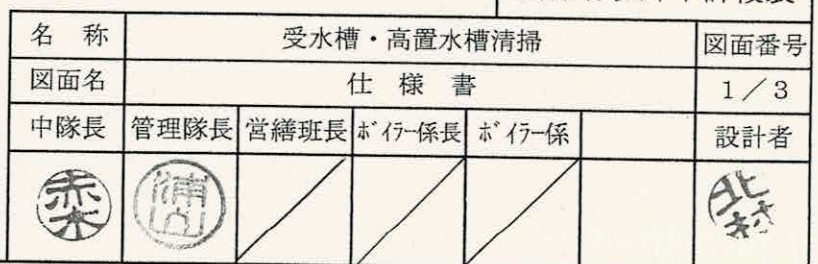 名 称 受水槽・高置水槽清掃 図面番号
図面名 仕 様 書 1/3
中隊長 管理隊長 営繕班長 ボイラー係長 ボイラー係 設計者
赤木 浦山 北村